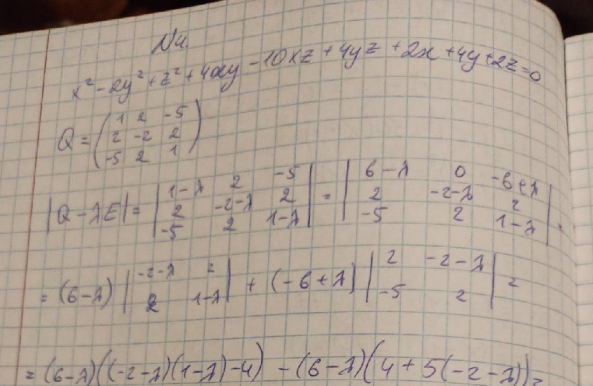 N4.
x² - 2y² + z² + 4xy - 10xz + 4yz + 2x + 4y + 2z = 0
Q = ( 1 2 -5
2 -2 2
-5 2 1 )
|Q - λE| = | 1-λ 2 -5 ; 2 -2-λ 2 ; -5 2 1-λ | = | 6-λ 0 -6+λ ; 2 -2-λ 2 ; -5 2 1-λ | =
= (6-λ) | -2-λ 2 ; 2 1-λ | + (-6+λ) | 2 -2-λ ; -5 2 | =
= (6-λ)((-2-λ)(1-λ)-4) - (6-λ)(4+5(-2-λ)) =